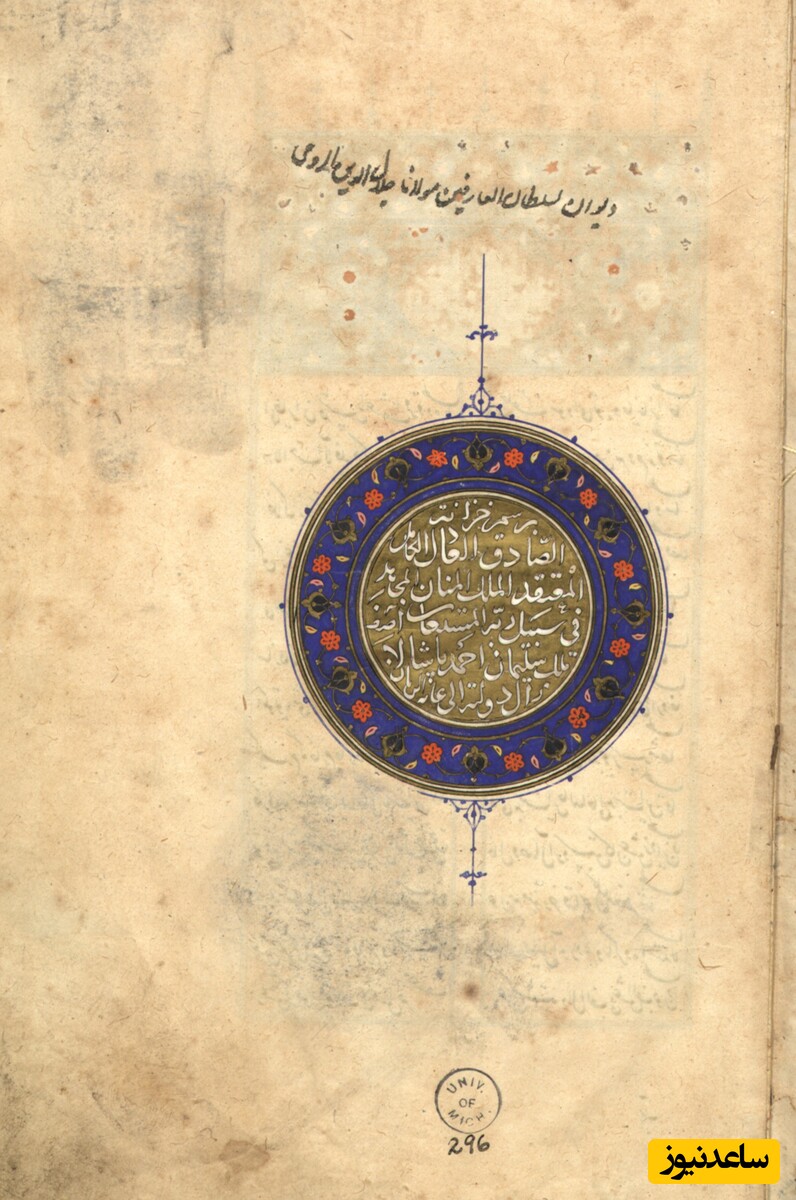 ديوان سلطان العارفين مولانا جلال الدين الرومي
برسم خزانة
الصادق الفال الكامل
المفتقد الملك المنان المجاهد
في سبيل رب المستعان آصف
ملك سليمان احمد باشا لا
زال دولته الى
UNIV.
OF
MICH.
296
ساعدنیوز